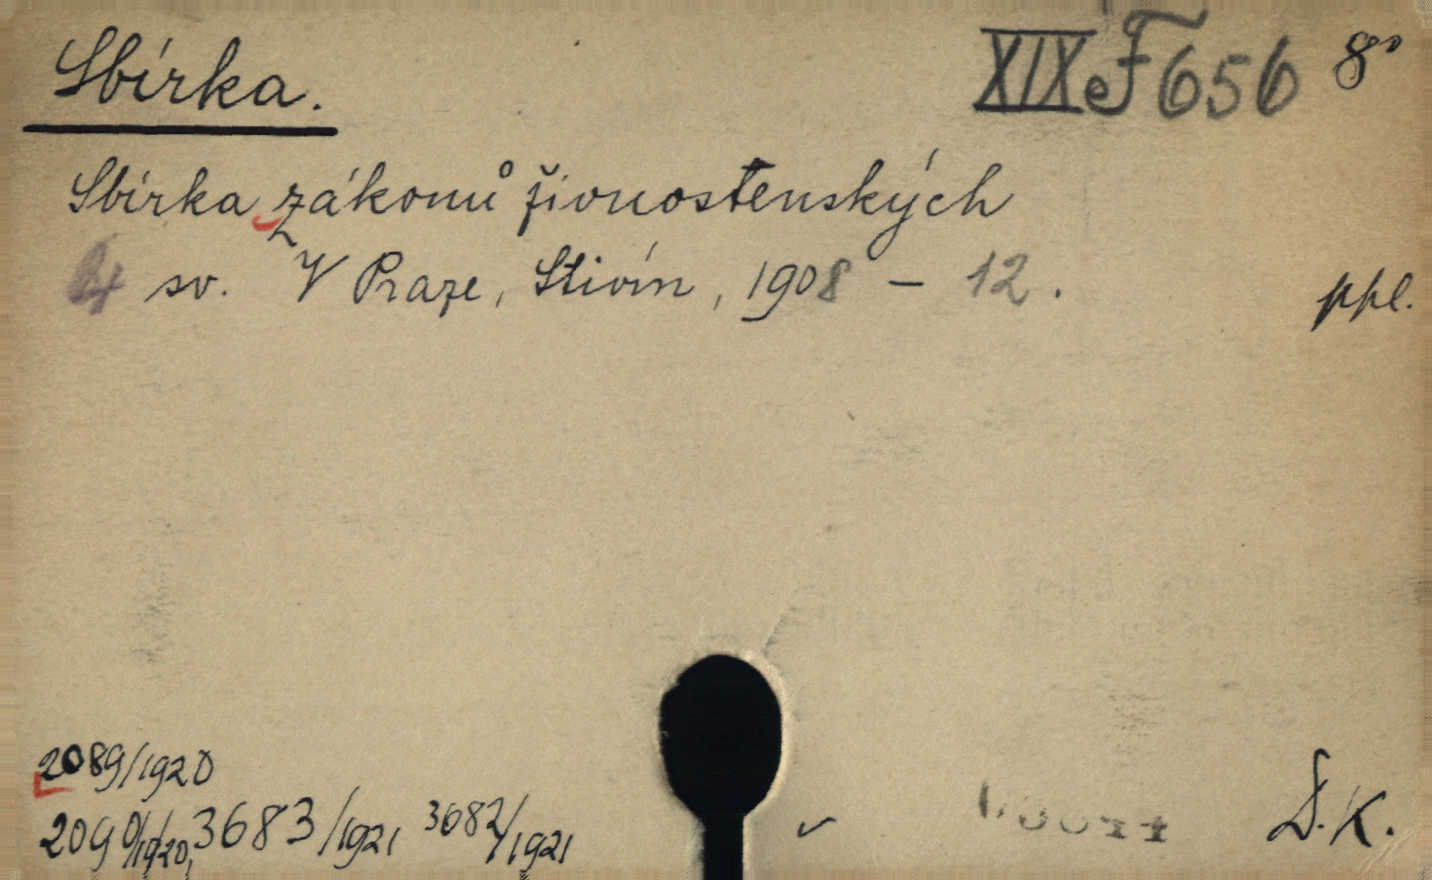 Sbírka. XIX e F 656 8°
Sbírka zákonů živnostenských
4 sv. V Praze, Stivín, 1908 – 12. ppl.
2089/1920
2090/1920, 3683/1921 3682/1921 D.K.